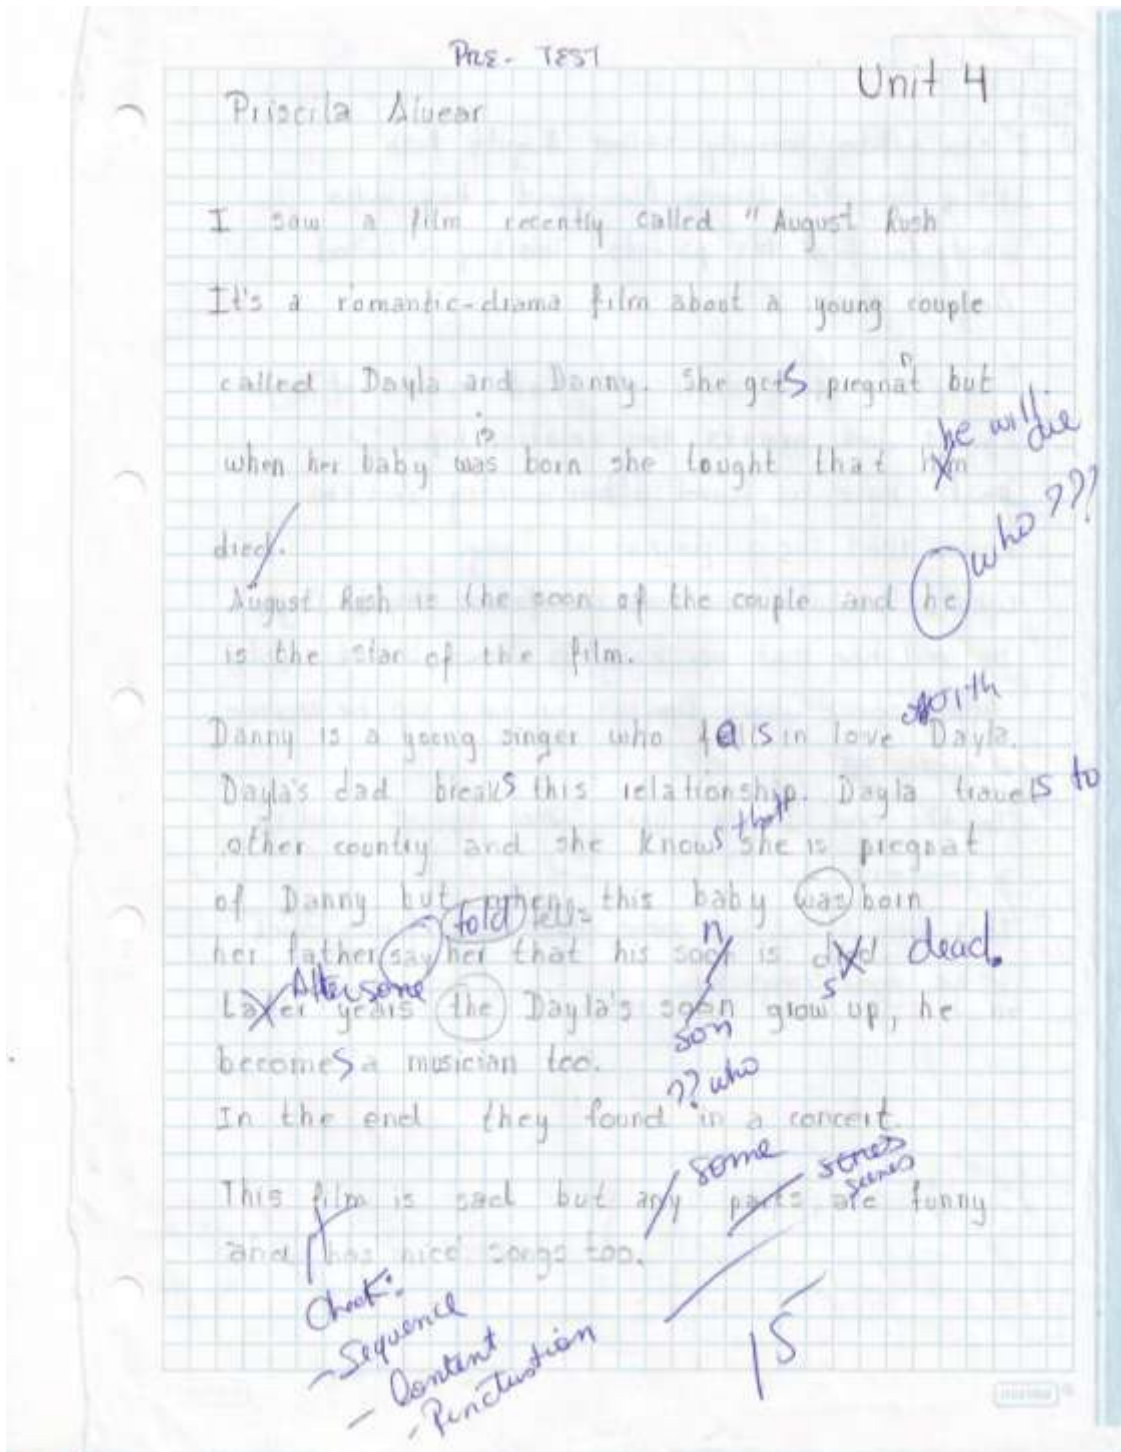 PRE- TEST
Unit 4
Priscila Alvear
I saw a film recently called " August Rush
It's a romantic-drama film about a young couple
called Dayla and Danny. She gets pregnat but
n
is
he will die
when her baby was born she tought that him
died.
who ???
August Rush is the soon of the couple and he
is the star of the film.
with
Danny is a young singer who falls in love Dayla.
Dayla's dad breaks this relationship. Dayla travels to
other country and she knows that she is pregnat
of Danny but when this baby was born
told
n
her father say her that his soon is died dead.
After some
s
Later years the Dayla's soon grow up, he
son
becomes a musician too.
?? who
In the end they found in a concert.
some
scenes
This film is sad but any parts are funny
and has nice songs too.
Check:
- Sequence
- Content
- Punctuation
15